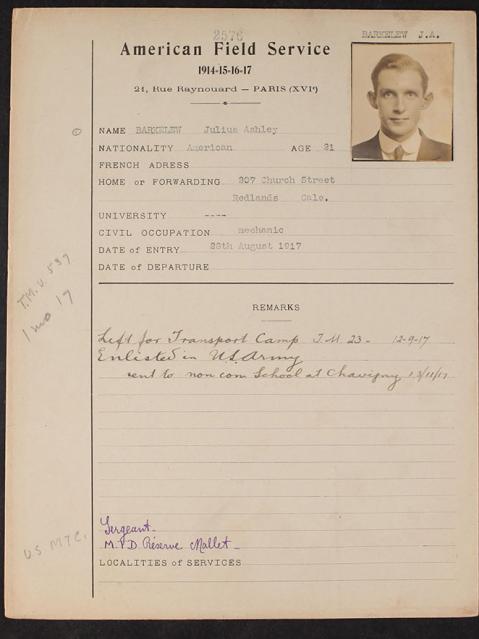 2576
BARKELEW J.A.
American Field Service
1914-15-16-17
21, Rue Raynouard — PARIS (XVIe)
NAME BARKELEW Julius Ashley
NATIONALITY American AGE 21
FRENCH ADRESS
HOME or FORWARDING 207 Church Street
Redlands Cale.
UNIVERSITY ----
CIVIL OCCUPATION mechanic
DATE of ENTRY 28th August 1917
DATE of DEPARTURE
T.M.U. 537
1 mo 17
REMARKS
Left for Transport Camp T.M. 23 - 12-9-17
Enlisted in U.S. Army
sent to non com School at Chavigny 12/11/17
U.S. M.T.C.
Sergeant -
M.P.D. Réserve Mallet -
LOCALITIES of SERVICES